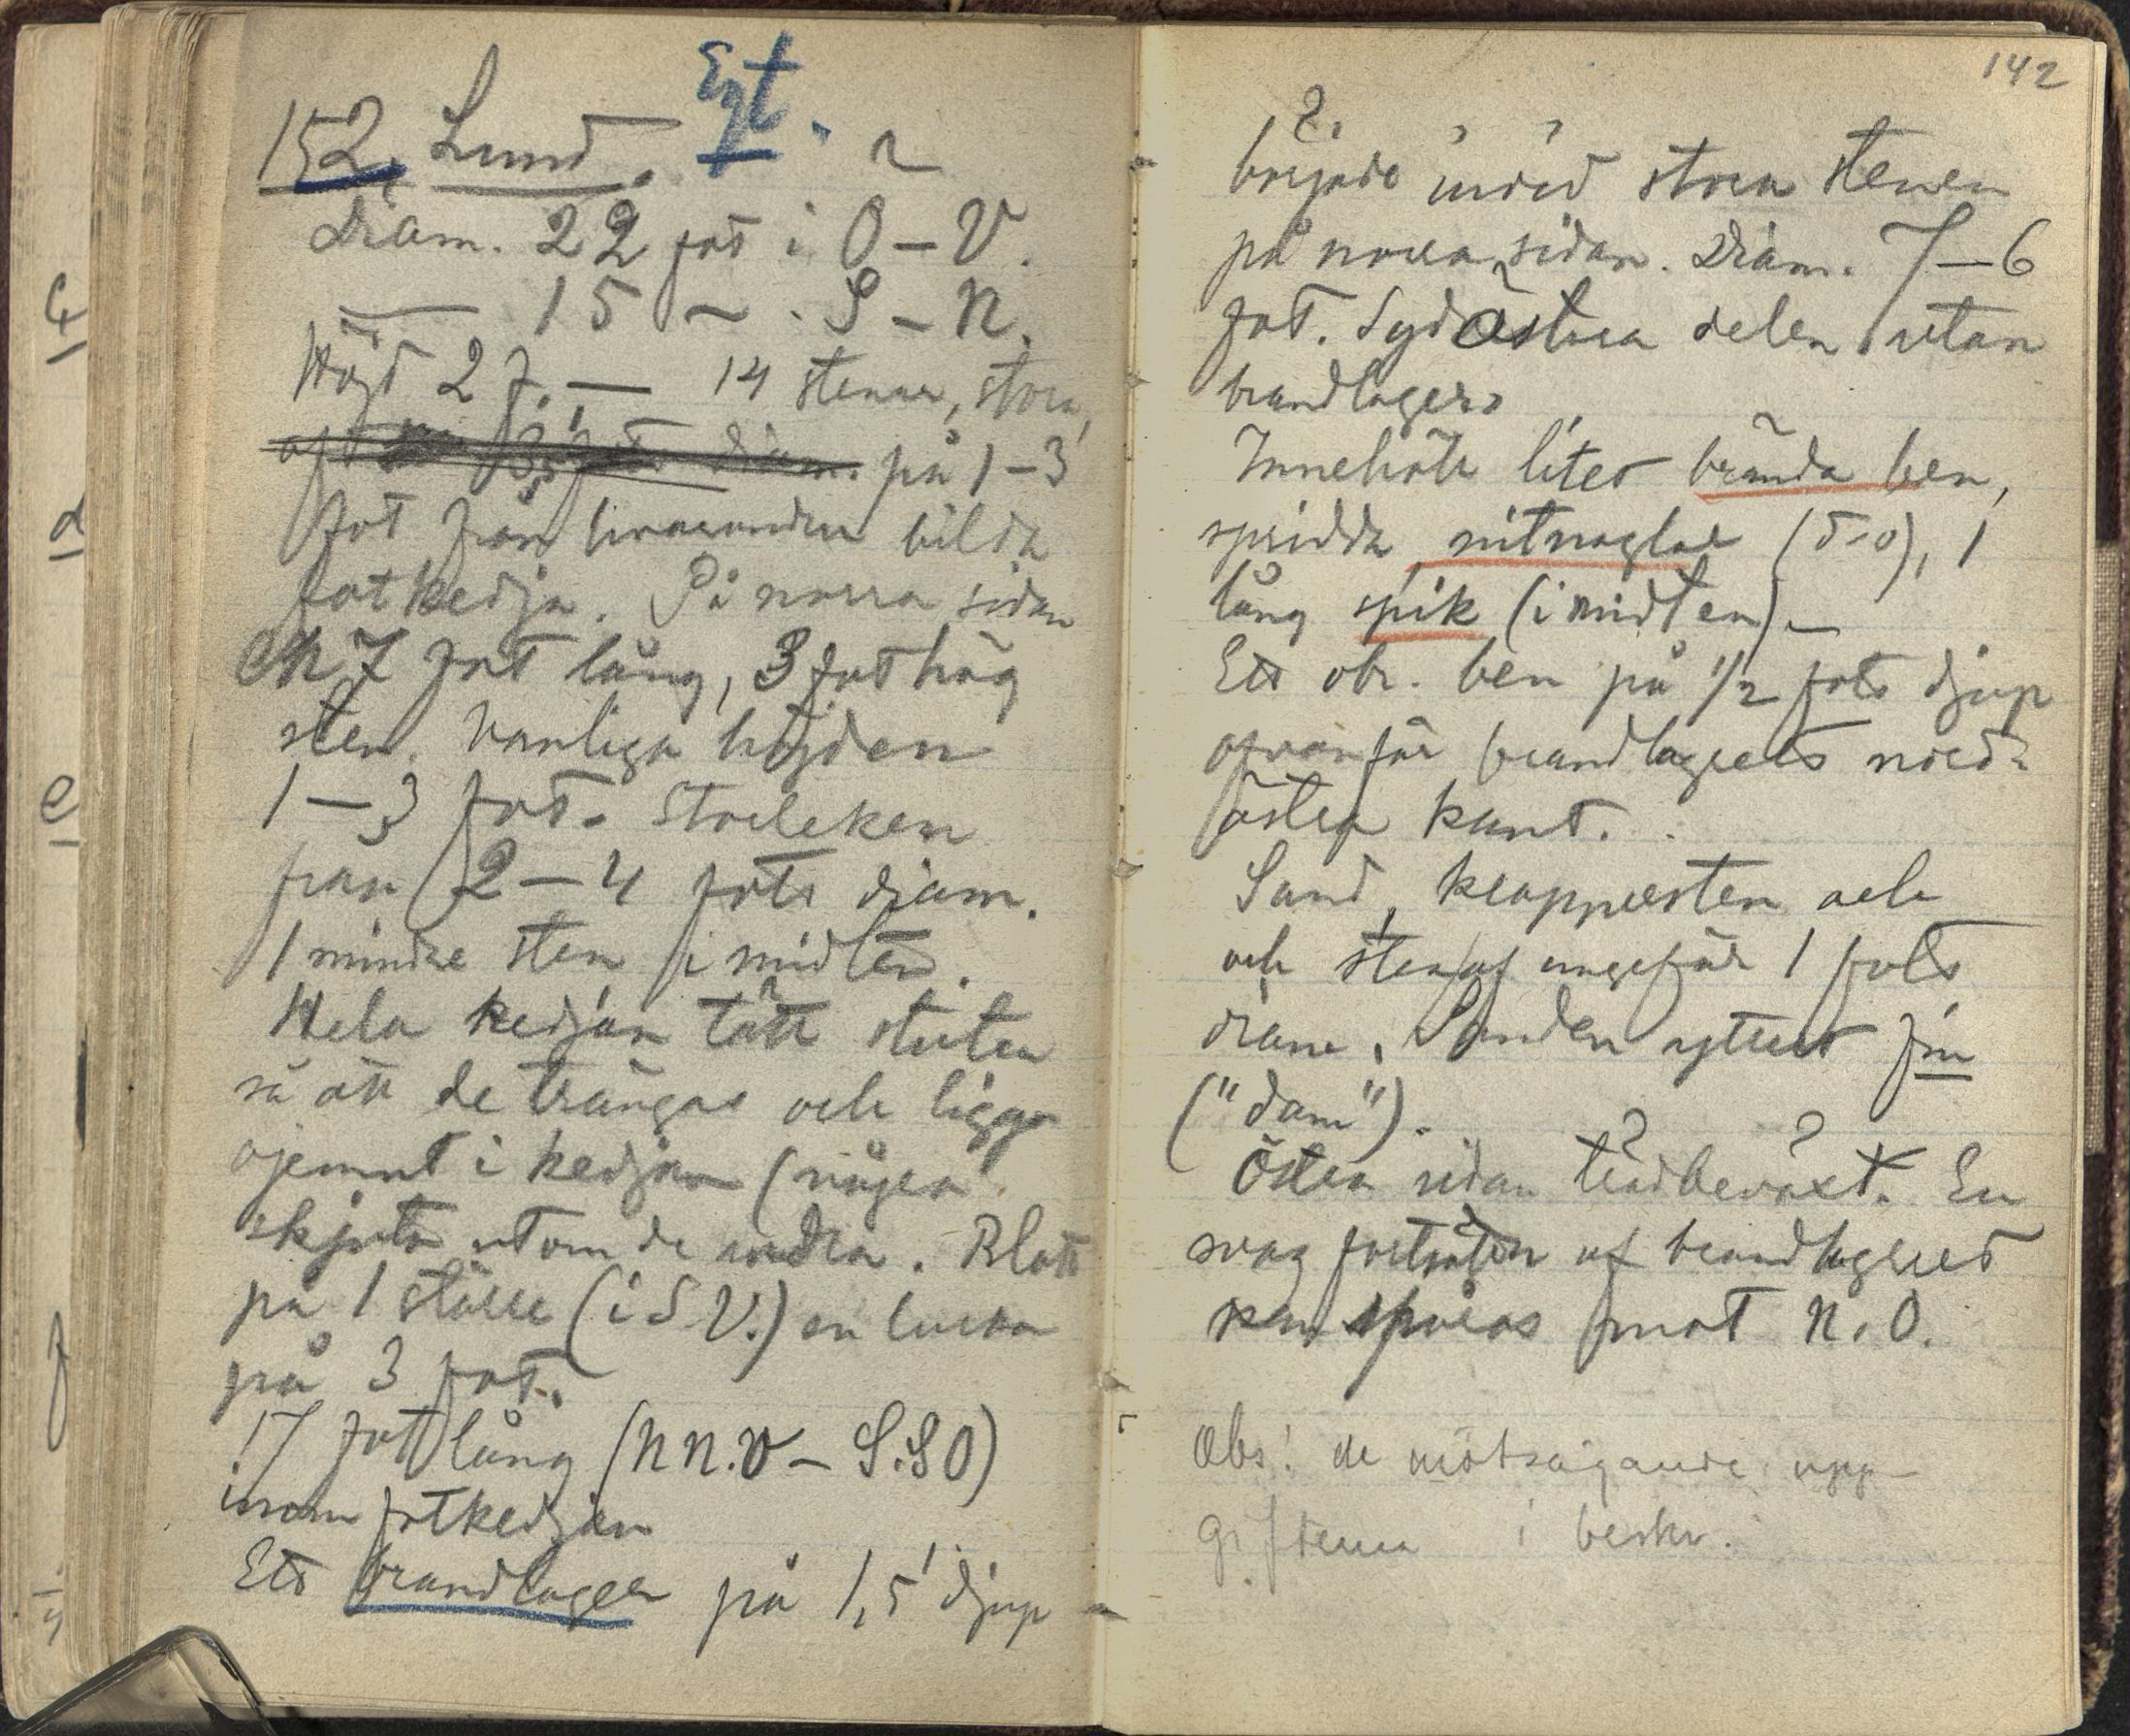 Ezt.
152. Lund.
Diam. 22 fot i O – V.
— 15 ~ . S – N.
Höjd 2 f. — 14 stenar, stora,
på 1–3
fot från hvarandra bilda
fotkedja. På norra sidan
en 7 fot lång, 3 fot hög
sten. Vanliga höjden
1–3 fot. Storleken
från 2–4 fots diam.
1 mindre sten i midten.
Hela kedjan tätt sluten
så att de trängas och ligga
ojemnt i kedjan (några
skjuta utom de andra. Blott
på 1 ställe (i S.V.) en lucka
på 3 fot.
17 fot lång (NN.V – S.SO)
inom fotkedjan
Ett brandlager på 1,5' djup
142
började invid stora stenen
på norra sidan. Diam. 7–6
fot. Sydöstra delen utan
brandlager.
Innehöll litet brända ben,
spridda nitnaglar (5-6), 1
lång spik (i midten). –
Ett obr. ben på 1/2 fots djup
ofvanför brandlagrets nord-
östra kant.
Sand, klappersten och
och sten af ungefär 1 fots
diam. Sanden ytterst fin
("dam").
Östra sidan trädbeväxt. En
svag fortsättn af brandlagret
kan spåras mot N.O.
Obs! de motsägande upp-
gifterna i beskr.
c
d
e
f